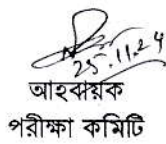 25.11.24
আহবায়ক
পরীক্ষা কমিটি